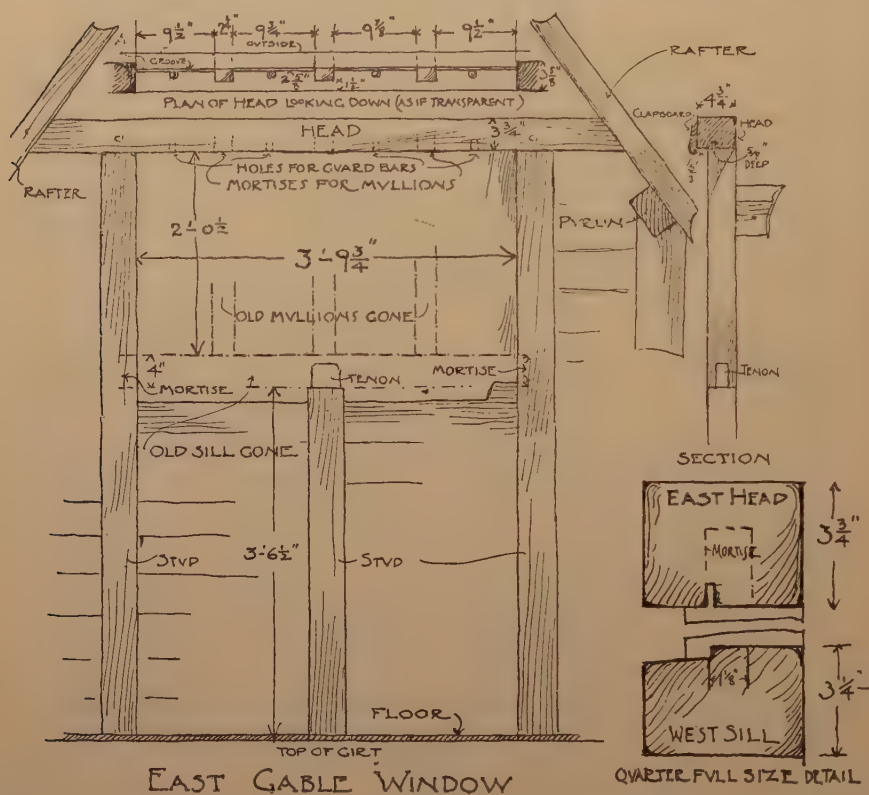 9½" 2¼" 9¾" 9⅞" 9½"
OUTSIDE
GROOVE
2⅝" 1½"
3⅝"
PLAN OF HEAD LOOKING DOWN (AS IF TRANSPARENT)
RAFTER
4¾"
CLAPBOARD
HEAD
¾" DEEP
HEAD
3¾"
HOLES FOR GUARD BARS
MORTISES FOR MULLIONS
RAFTER
PURLIN
2'-0½
3'-9¾"
OLD MULLIONS GONE
4"
MORTISE
TENON
MORTISE
TENON
OLD SILL GONE
SECTION
EAST HEAD
MORTISE
3¾"
3'-6½"
STUD
STUD
1⅛"
3¼"
WEST SILL
FLOOR
TOP OF GIRT
EAST GABLE WINDOW
QUARTER FULL SIZE DETAIL